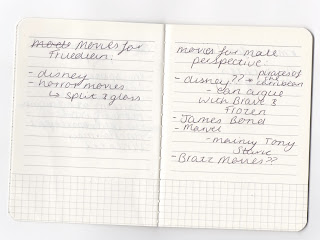 Movies for
- disney
- horror movies
↳ split & glass
movies for male
perspective:
pirates of
- disney?? * the caribbean
- can argue
with Brave &
Frozen
- James Bond
- Marvel
- mainly Tony
Stark
- Bratz Movies??